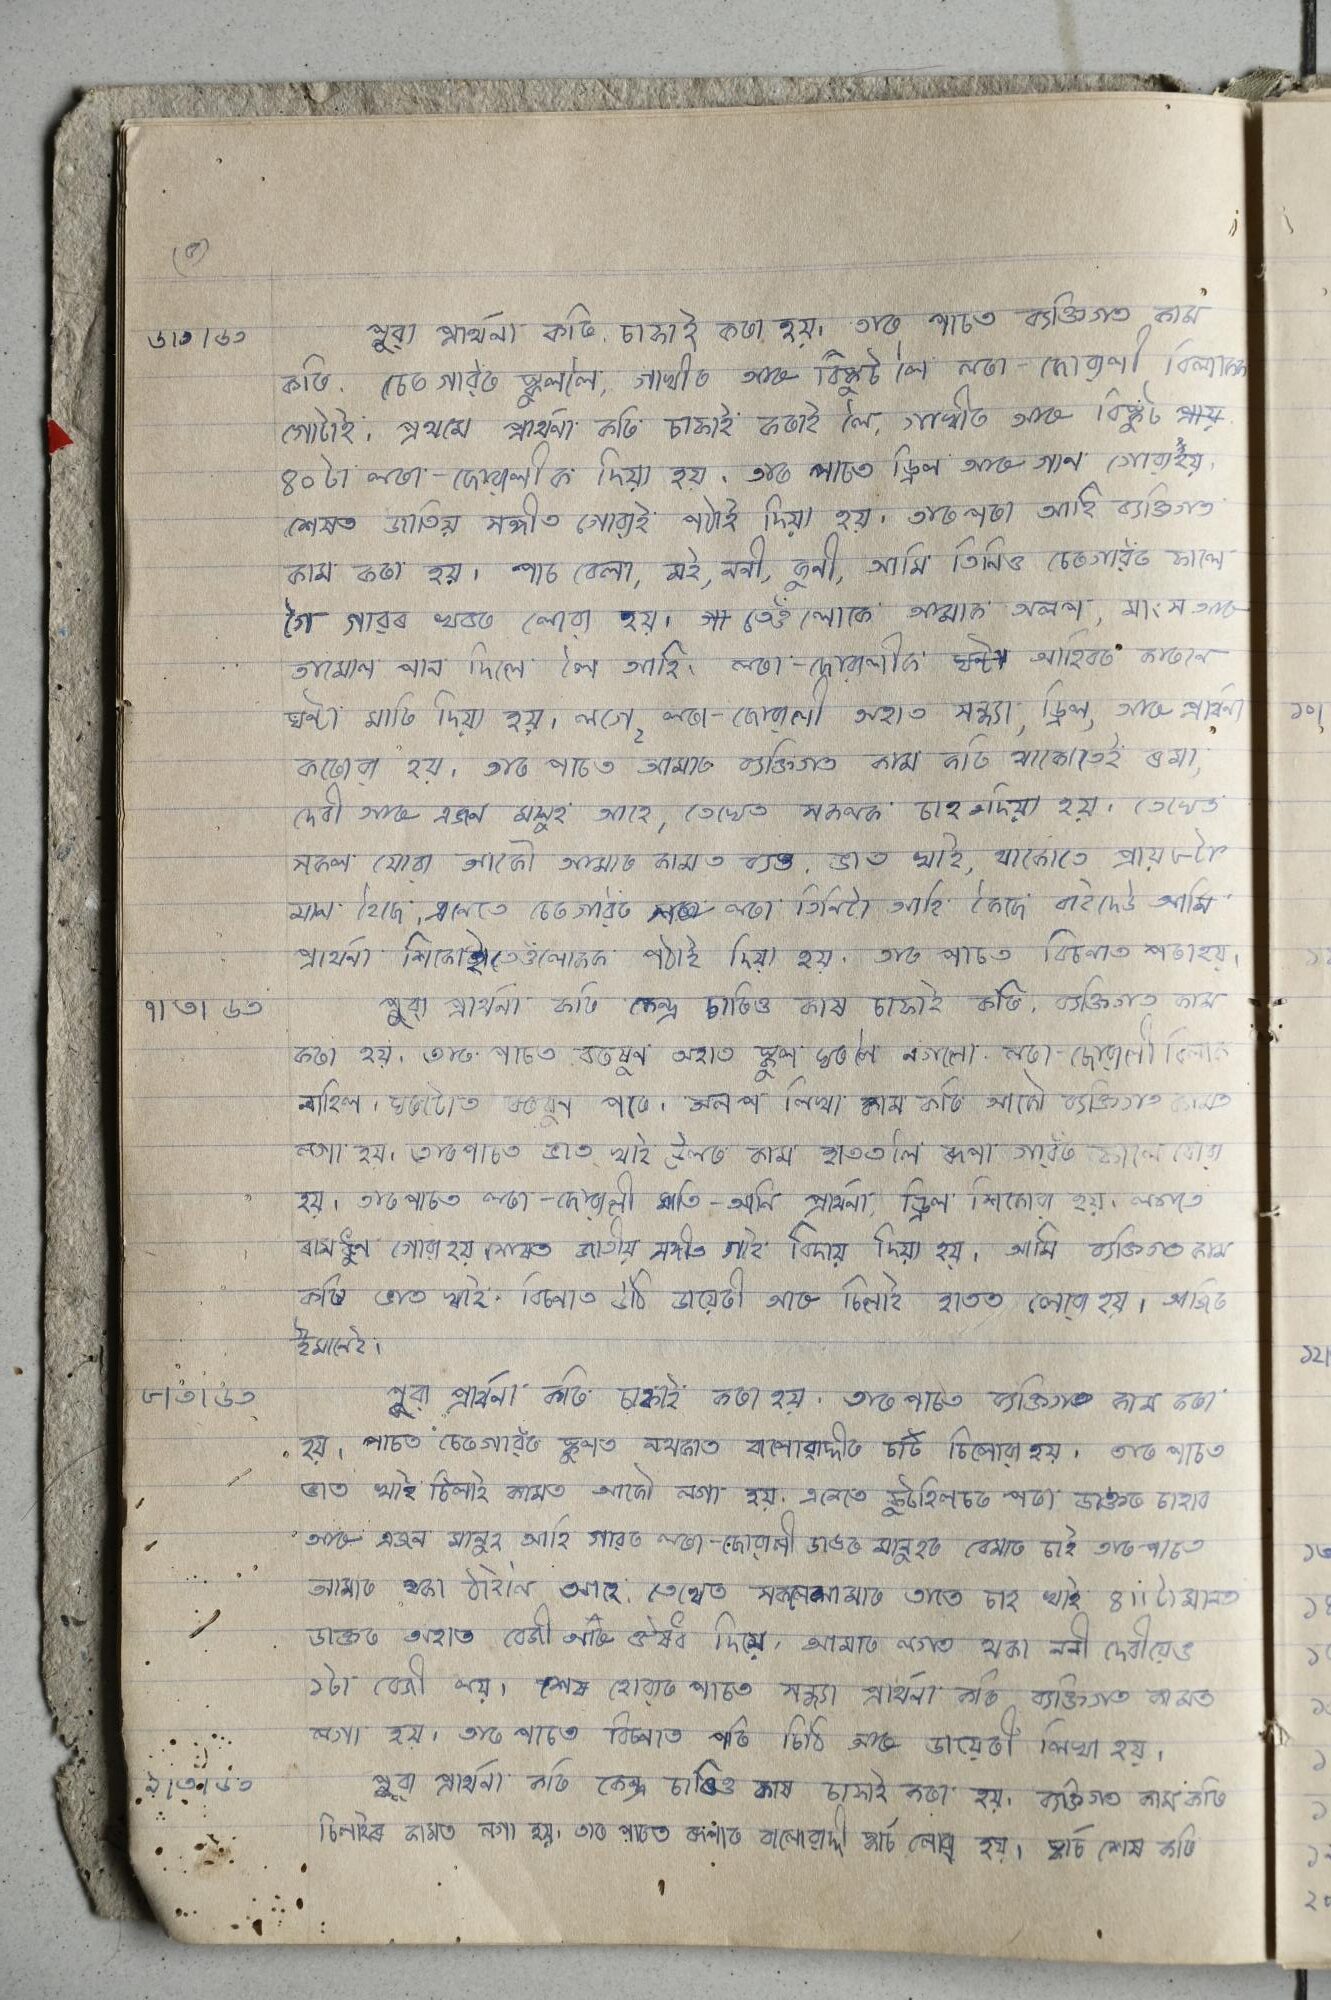 ৬।৩।৬৩ পুৱা প্ৰাৰ্থনা কৰি চাফাই কৰা হয়। তাৰ পাচত ব্যক্তিগত কাম
কৰি. চেৰগাৱঁৰ স্কুললৈ, গাখীৰ আৰু বিস্কুট লৈ লৰা-ছোৱালী বিলাকক
গোটাই, প্ৰথমে প্ৰাৰ্থনা কৰি চাফাই কৰাই লৈ, গাখীৰ আৰু বিস্কুট প্ৰায়
৪০টা লৰা-ছোৱালীক দিয়া হয়. তাৰ পাচত ড্ৰিল আৰু গান গোৱা হয়.
শেষত জাতিয় সঙ্গীত গোৱাই পঠাই দিয়া হয়। তাৰপৰা আহি ব্যক্তিগত
কাম কৰা হয়। পাচ বেলা, মই, ননী, জুনী, আমি তিনিও চেৰগাৱঁৰ ফালে
গৈ গাৱৰ খবৰ লোৱা হয়। তেওঁলোকে আমাক অলপ, মাংস আৰু
তামোল পান দিলে লৈ আহি. লৰা-ছোৱালীক ঘন্টা আহিবৰ কাৰনে
ঘন্টা মাৰি দিয়া হয়। লগে২ লৰা-ছোৱালী অহাত সন্ধ্যা, ড্ৰিল, আৰু প্ৰাৰ্থনা
কৰোৱা হয়. তাৰ পাচত আমাৰ ব্যক্তিগত কাম কৰি থাকোতেই ৰমা,
দেৱী আৰু এজন মানুহ আহে, তেখেত সকলক চাহ দিয়া হয়। তেখেত
সকল যোৱা আকৌ আমাৰ কামত ব্যস্ত. ভাত খাই, থাকোতে প্ৰায় ৮টা
মান হৈছে, এনেতে চেৰগাৱঁৰ লৰা তিনিটা আহি কৈছে বাইদেউ আমি
প্ৰাৰ্থনা শিকো তেওঁলোকক পঠাই দিয়া হয়. তাৰ পাচত বিচনাত পৰা হয়.
৭।৩।৬৩ পুৱা প্ৰাৰ্থনা কৰি কেন্দ্ৰ চাৰিও কাষ চাফাই কৰি. ব্যক্তিগত কাম
কৰা হয়. তাৰ পাচত বৰষুন অহাত স্কুল ঘৰলৈ নগলো. লৰা-ছোৱালী বিলাক
নাহিল. ঘৰটোত বৰষুন পৰে. অলপ লিখা কাম কৰি আকৌ ব্যক্তিগত কামত
লগা হয়. তাৰপাচত ভাত খাই উলৰ কাম হাতত লৈ ৰূপা গাৱঁৰ ফালে যোৱা
হয়. তাৰপাচত লৰা-ছোৱালী মাতি-আনি প্ৰাৰ্থনা, ড্ৰিল শিকোৱা হয়. লগতে
ৰামধুন গোৱা হয়, শেষত জাতীয় সঙ্গীত গাই বিদায় দিয়া হয়. আমি ব্যক্তিগত কাম
কৰি ভাত খাই. বিচনাত উঠি ডায়েৰী আৰু চিলাই হাতত লোৱা হয়। আজিৰ
ইমানেই।
৮।৩।৬৩ পুৱা প্ৰাৰ্থনা কৰি চাফাই কৰা হয়. তাৰ পাচত ব্যক্তিগত কাম কৰা
হয়. পাচত চেৰগাৱঁৰ স্কুলত নথকাত বালোৱাদীৰ চাৰ্ট চিলোৱা হয়. তাৰ পাচত
ভাত খাই চিলাই কামত আকৌ লগা হয়. এনেতে ফুটহিলচৰ পৰা ডাক্তৰ চাহাব
আৰু এজন মানুহ আহি গাৱৰ লৰা-ছোৱালী ডাঙৰ মানুহৰ বেমাৰ চাই তাৰ পাচত
আমাৰ থকা ঠাইলৈ আহে. তেখেত সকলে আমাৰ তাতে চাহ খাই ৪॥টা মানত
ডাক্তৰ অহাত বেজী আৰু ঔষধ দিয়ে. আমাৰ লগত থকা ননী দেৱীয়েও
১টা বেজী লয়। শেষ হোৱাৰ পাচত সন্ধ্যা প্ৰাৰ্থনা কৰি ব্যক্তিগত কামত
লগা হয়. তাৰ পাচত বিচনাত পৰি চিঠি আৰু ডায়েৰী লিখা হয়.
৯।৩।৬৩ পুৱা প্ৰাৰ্থনা কৰি কেন্দ্ৰ চাৰিও কাষ চাফাই কৰা হয়. ব্যক্তিগত কাম কৰি
চিলাইৰ কামত লগা হয়. তাৰ পাচত ৰূপাৰ বালোৱাদী চাৰ্ট লোৱা হয়। চাৰ্ট শেষ কৰি